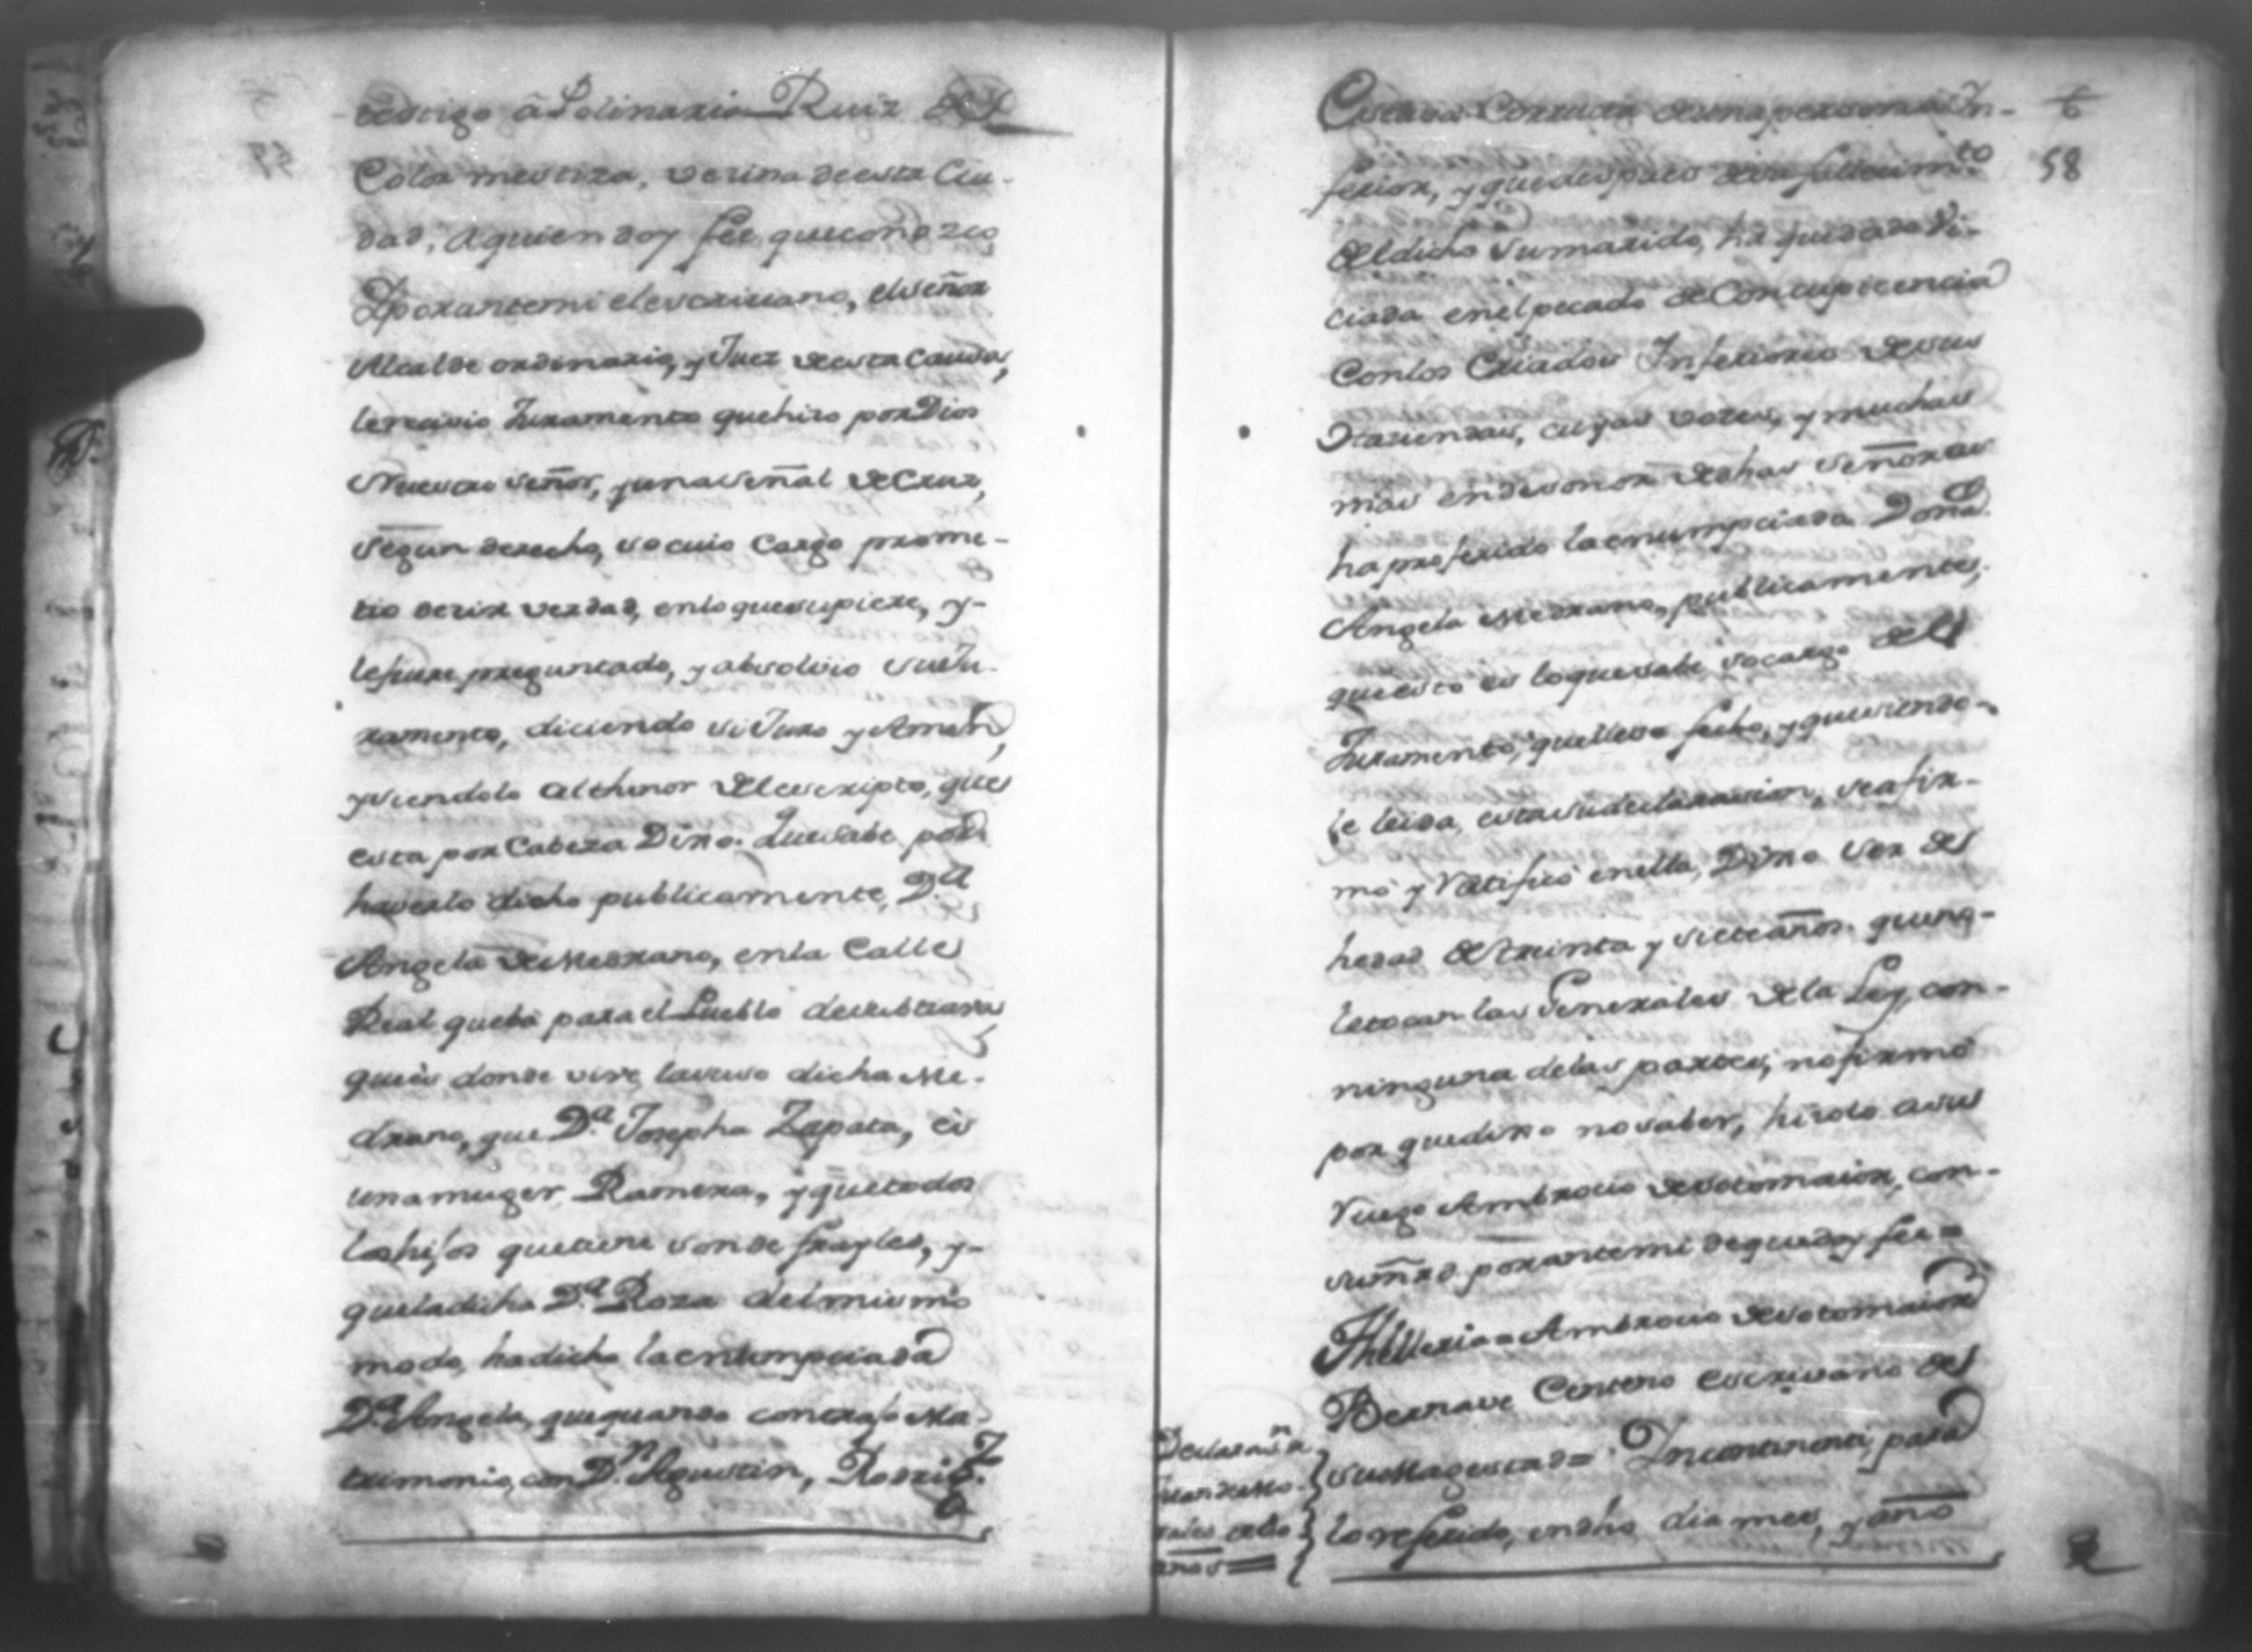 testigo â Polinaria Ruiz de
Color mestiza, vecina de esta Ciu-
dad, a quien doy feê, que conozco
Y por ante mi el escriuano, el señor
Alcalde ordinario, y Juez de esta Causa,
le reciuio Juramento que hizo por Dios
Nuestro señor, y una señal de Cruz,
segun derecho, so cuio Cargo prome-
tio decir verdad, en lo que supiere, y-
le fuere preguntado, y absolvio su Ju-
ramento, diciendo si Juro y Amen,
y siendolo al thenor del escripto, que
esta por Cabeza Dixo. Que sabe por
haverlo dicho publicamente, D.ª
Angela de Medrano, en la Calle
Real que bà para el Pueblo de
que es donde vive la suso dicha Me-
drano, que D.ª Josepha Zapata, es
una muger Ramera, y que todos
los hijos que tiene son de frayles, y-
que la dicha D.ª Roza del mismo
modo, ha dicho la enumpciada
D.ª Angela, que quando contrajo Ma-
trimonio, con D.n Agustin, Rodrig.z
6
58
Estava Corrupta de una persona In-
ferior, y que despues de su fallecim.to
del dicho su marido, ha quedado Vi-
ciada en el pecado de Concupicencia
Con los Criados Inferiores de sus
Haciendas, cuyas vozes, y muchas
mas en desonor de dhas señoras
ha proferido la enumpciada Doña
Angela Medrano, publicamente,
que esto es lo que sabe so cargo del
Juramento, que lleva fecho, y que siendo-
le leida, esta su declarasion, se afir-
mó y Ratificó en ella, Dixo ser de
hedad de treinta y siete años. que no-
le tocan las Generales de la Ley, con-
ninguna de las partes, no firmó
por que dixo no saber, hizolo a su
Ruego Ambrosio de Sotomaior, con-
su mrd. por ante mi de que doy feê=
Ambrosio de Sotomaior
Bernave Centeno escrivano de
su Magestad= Incontinenti, para
lo referido, en dho dia mes, y año
Declaras.n
años=